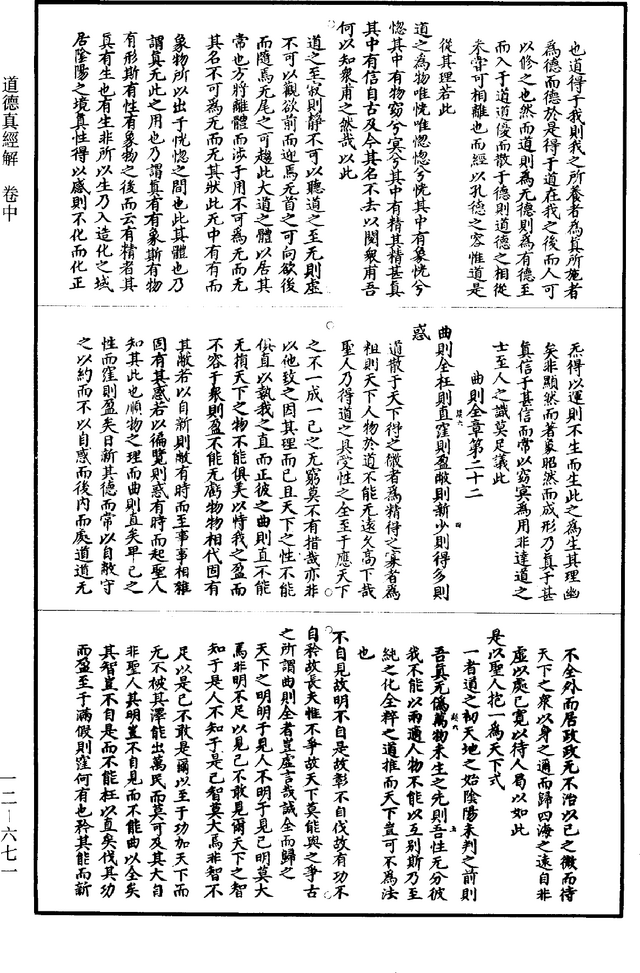 道德真經解　卷中
也道得于我則我之所養者為真所施者
為德而德於是得于道在我之後而人可
以修之也然而道則為无德則為有德至
而入于道道復而散于德則道德之相從
未嘗可相離也而經以孔德之容惟道是
從其理若此
道之為物唯恍唯惚惚兮恍其中有象恍兮
惚其中有物窈兮冥兮其中有精其精甚真
其中有信自古及今其名不去以閱衆甫吾
何以知衆甫之然哉以此
道之至寂則靜不可以聽道之至无則虛
不可以觀欲前而迎焉无首之可向欲後
而隨焉无尾之可趨此大道之體以居其
常也方將離體而涉于用不可為无而无
其名不可為无而无其狀此无中有有而
象物所以出于恍惚之間也此其體也乃
謂真无此之用也乃謂真有有象斯有物
有形斯有性有象物之後而云有精者其
真有生也有生非所以生乃入造化之域
居陰陽之境真性得以感則不化而化正
炁得以運則不生而生此之為生其理幽
矣非顯然而著象昭然而成形乃真于甚
真信于甚信而常以窈冥為用非達道之
士至人之識莫足議此
曲則全章第二十二
曲則全枉則直窪則盈敝則新少則得多則
惑
道散于天下得之微者為精得之寡者為
粗則天下人物於道不能无遠久高下哉
聖人乃得道之具受性之全至于應天下
之不一成一己之无窮莫不有措哉亦非
以他致之因其理而已且天下之性不能
俱直以執我之直而正彼之曲則直不能
无損天下之物不能俱矣以恃我之盈而
不容于衆則盈不能无虧物物相代固有
其敝若以自新則敝有時而至事事相雜
因有其惑若以徧覽則惑有時而起聖人
知其此也順物之理而曲則直矣卑己之
性而窪則盈矣日新其德而常以自敝守
之以約而不以自惑而後內而處道道无
不全外而居政政无不治以己之微而待
天下之衆以身之邇而歸四海之遠自非
虛以處己寬以待人曷以如此
是以聖人抱一為天下式
一者道之初天地之始陰陽未判之前則
吾真无偽萬物未生之先則吾性无分彼
我不能以兩適人物不能以互別斯乃至
純之化全粹之道推而天下豈可不為法
也
不自見故明不自是故彰不自伐故有功不
自矜故長夫惟不爭故天下莫能與之爭古
之所謂曲則全者豈虛言哉誠全而歸之
天下之明明于見人不明于見己明莫大
焉非明不足以見己不敢見爾天下之智
知于是人不知于是己智莫大焉非智不
足以是己不敢是爾以至于功加天下而
无不被其澤能出萬民而莫可及其大自
非聖人其明豈不自見而不能曲以全矣
其智豈不自是而不能枉以直矣伐其功
而盈至于滿假則窪何有也矜其能而新
一二—六七一